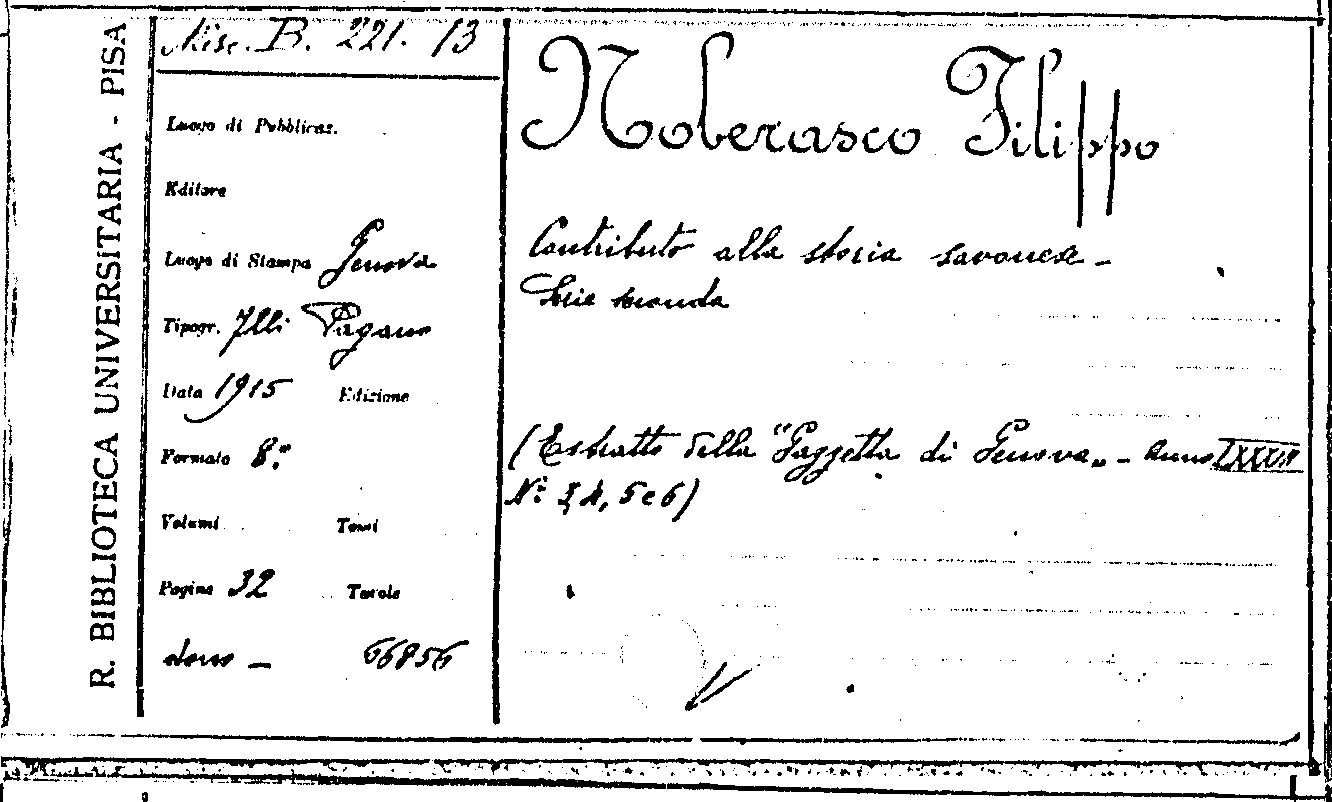 R. BIBLIOTECA UNIVERSITARIA - PISA
Misc. B. 221. 13
Luogo di Pubblicaz.
Editore
Luogo di Stampa Genova
Tipogr. Flli Pagano
Data 1915 Edizione
Formato 8:º
Volumi Tomi
Pagine 32 Tavole
dono - 66856
Noberasco Filippo
Contributo alla storia savonese -
Serie seconda
(Estratto della "Gazzetta di Genova„ - Anno
Nº 3, 4, 5 e 6)